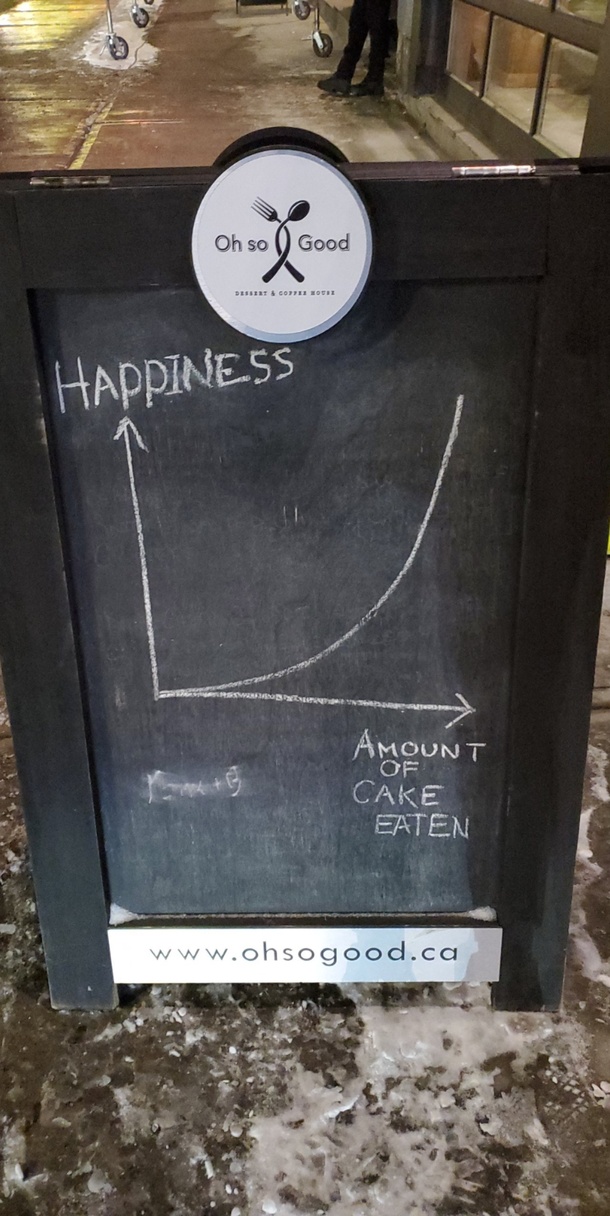 Oh so Good
DESSERT & COFFEE HOUSE
HAPPINESS
AMOUNT
OF
CAKE
EATEN
www.ohsogood.ca